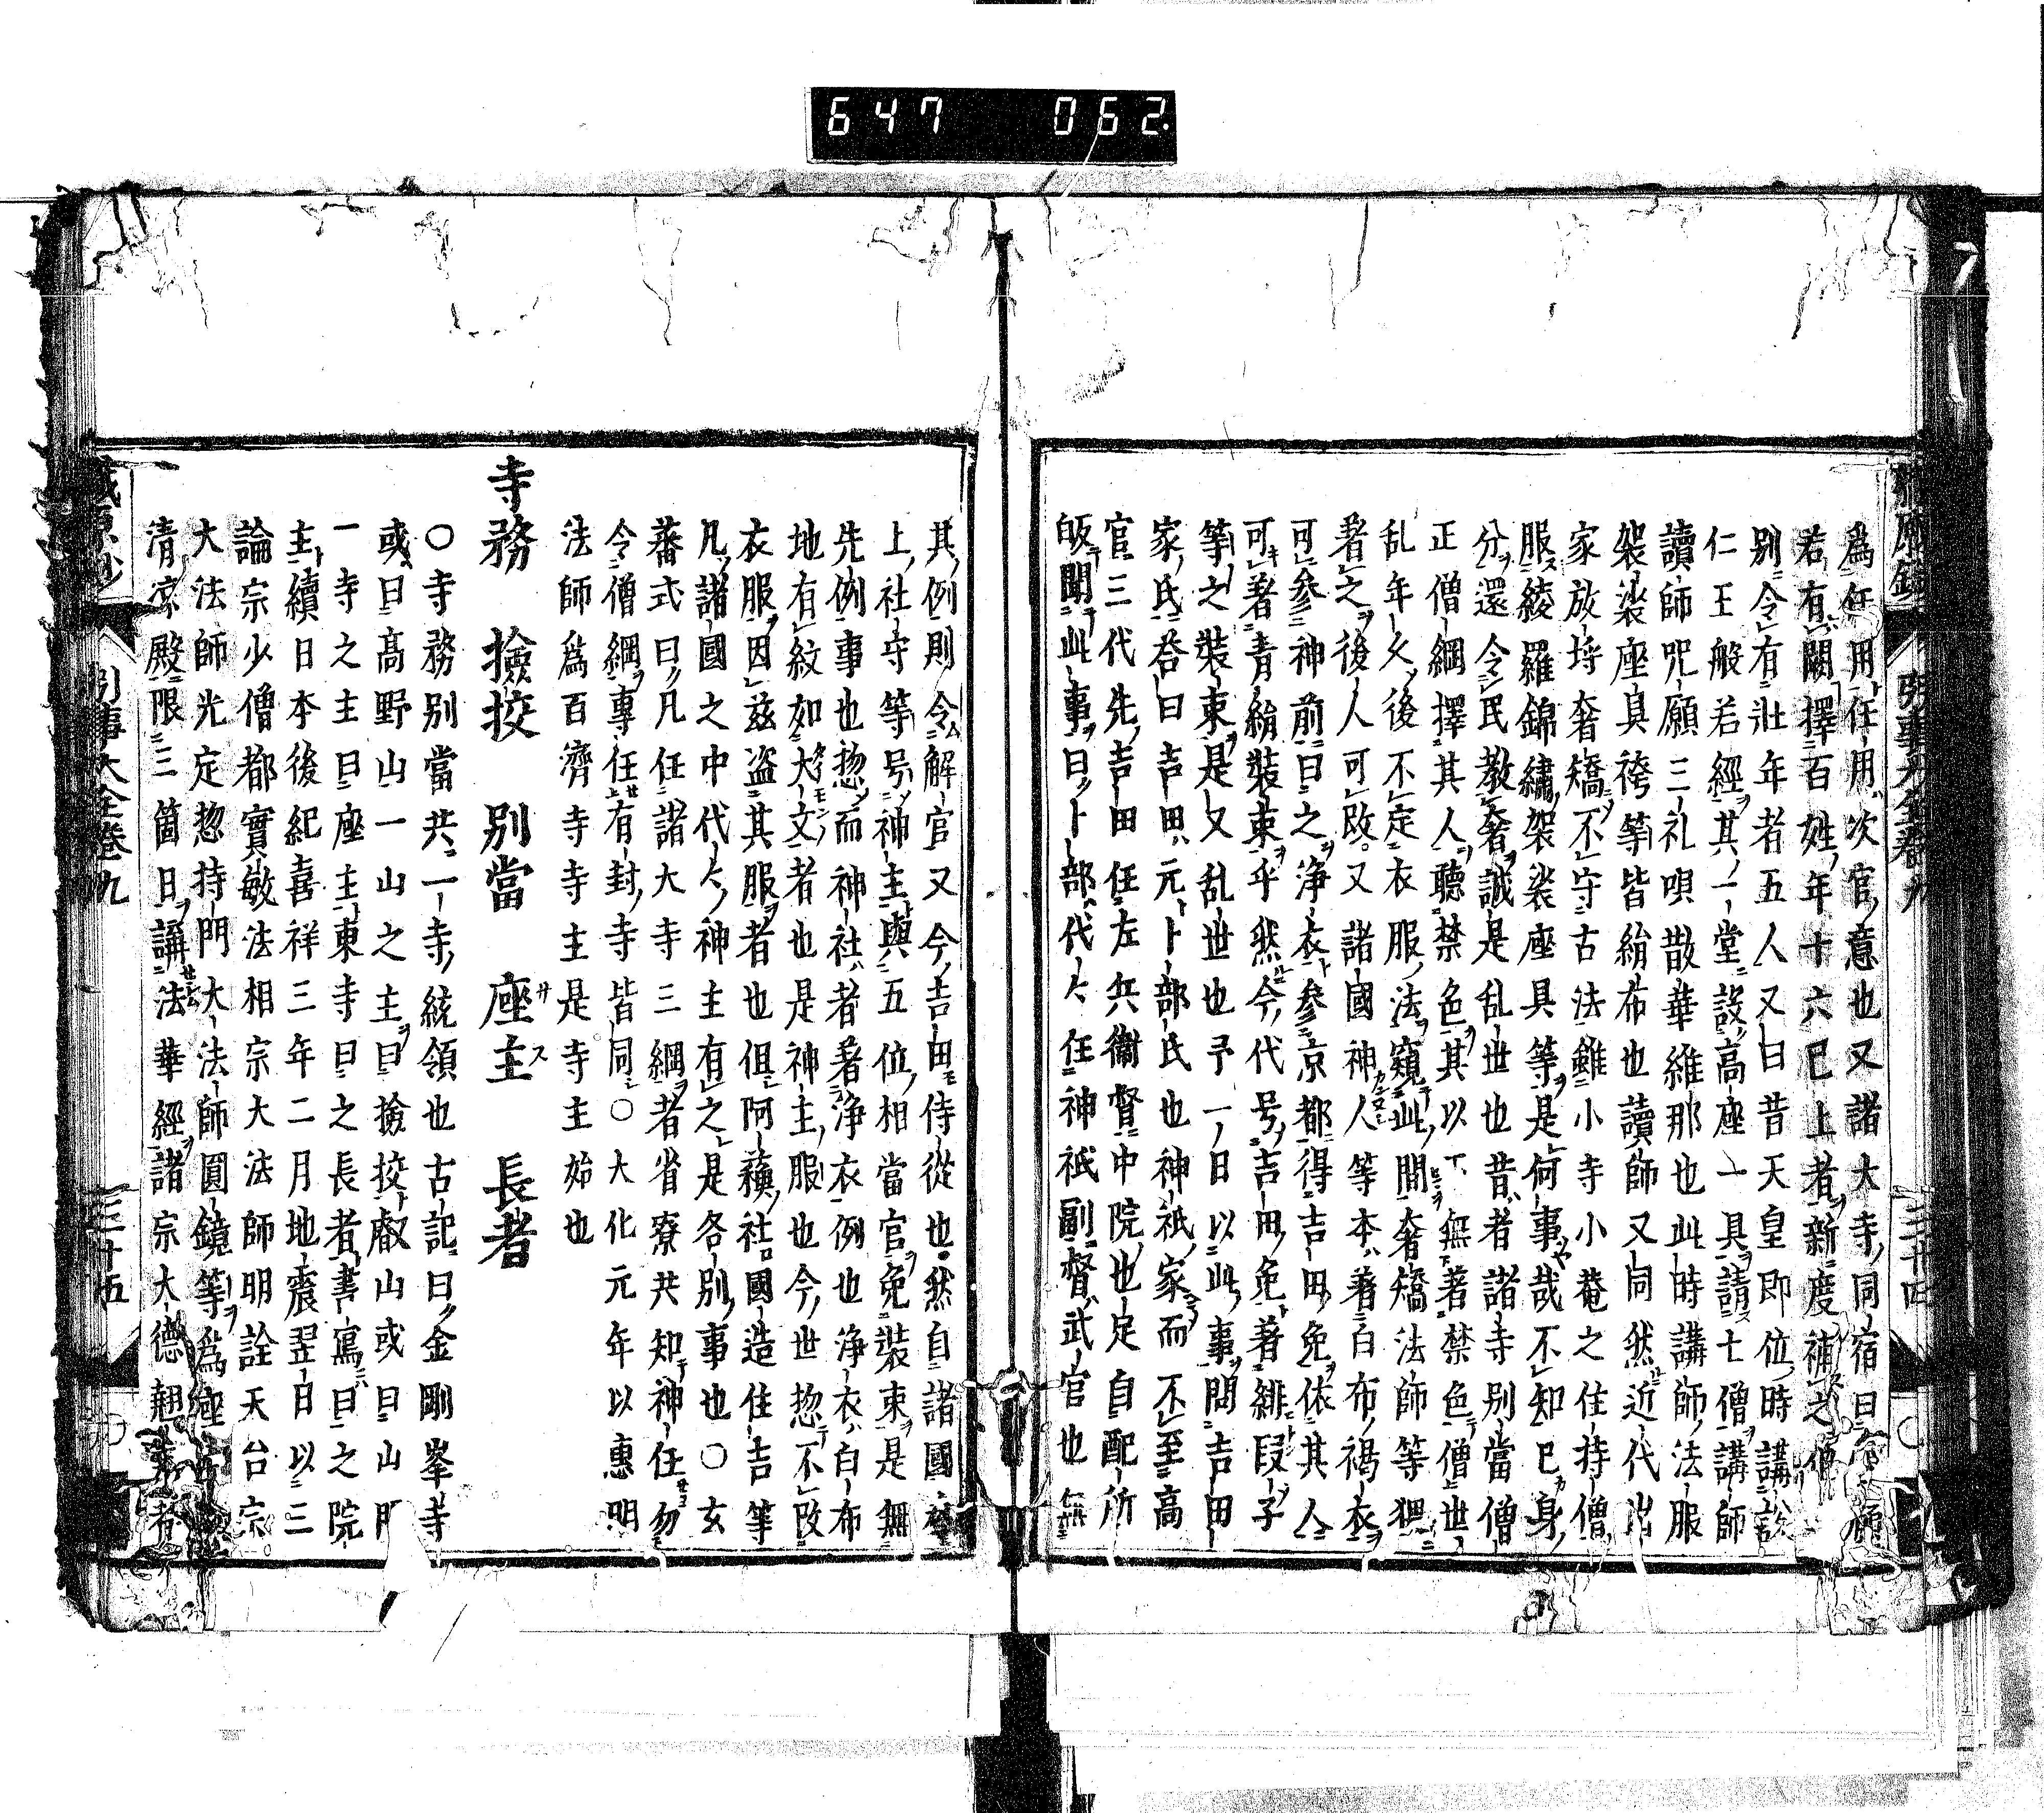 647 062
爲任用任用次官意也又諸大寺同宿曰
若有闕擇百姓年十六已上者新度補之僧
別令有壯年者五人又曰昔天皇即位時講說
仁王般若經其一堂設高座一具請七僧講師
讀師咒願三礼唄散華維那也此時講師法服
袈裟座具袴等皆絹布也讀師又同然近代出
家放埓奢矯不守古法雖小寺小菴之住持僧
服綾羅錦繡袈裟座具等是何事哉不知已身
分還令民教奢誠是乱世也昔者諸寺別當僧
正僧綱擇其人聽禁色其以下無著禁色僧世
乱年久後不定衣服法窺此間奢矯法師等猥
著之後人可改又諸國神人等本著白布褐衣
可参神前曰之淨衣参京都得吉田免依其人
可著青絹裝束乎然今代号吉田免著緋段子
等之裝束是又乱世也予一日以此事問吉田
家氏答曰吉田元卜部氏也神祇家而不至高
官三代先吉田任左兵衞督中院也定自配所
皈聞此事曰卜部代々任神祇副督武官也無
其例則令解官又今吉田侍從也然自諸國
上社守等号神主與五位相當官免裝束是無
先例事也惣而神社者著淨衣例也淨衣白布
地有紋如大文者也是神主服也今世惣不改
衣服因茲盜其服者也但阿蘓社國造住吉等
凡諸國之中代々神主有之是各別事也○玄
蕃式曰凡任諸大寺三綱者省寮共知神任勿
令僧綱專任有封寺皆同○大化元年以惠明
法師爲百濟寺寺主是寺主始也
寺務 撿挍 別當 座主 長者
○寺務別當共一寺統領也古記曰金剛峯寺
或曰髙野山一山之主曰撿挍叡山或曰山門
一寺之主曰座主東寺曰之長者書寫曰之院
主續日本後紀喜祥三年二月地震翌日以三
論宗少僧都實敏法相宗大法師明詮天台宗
大法師光定惣持門大法師圓鏡等爲座
清凉殿限三箇日講法華經諸宗大德翹 者